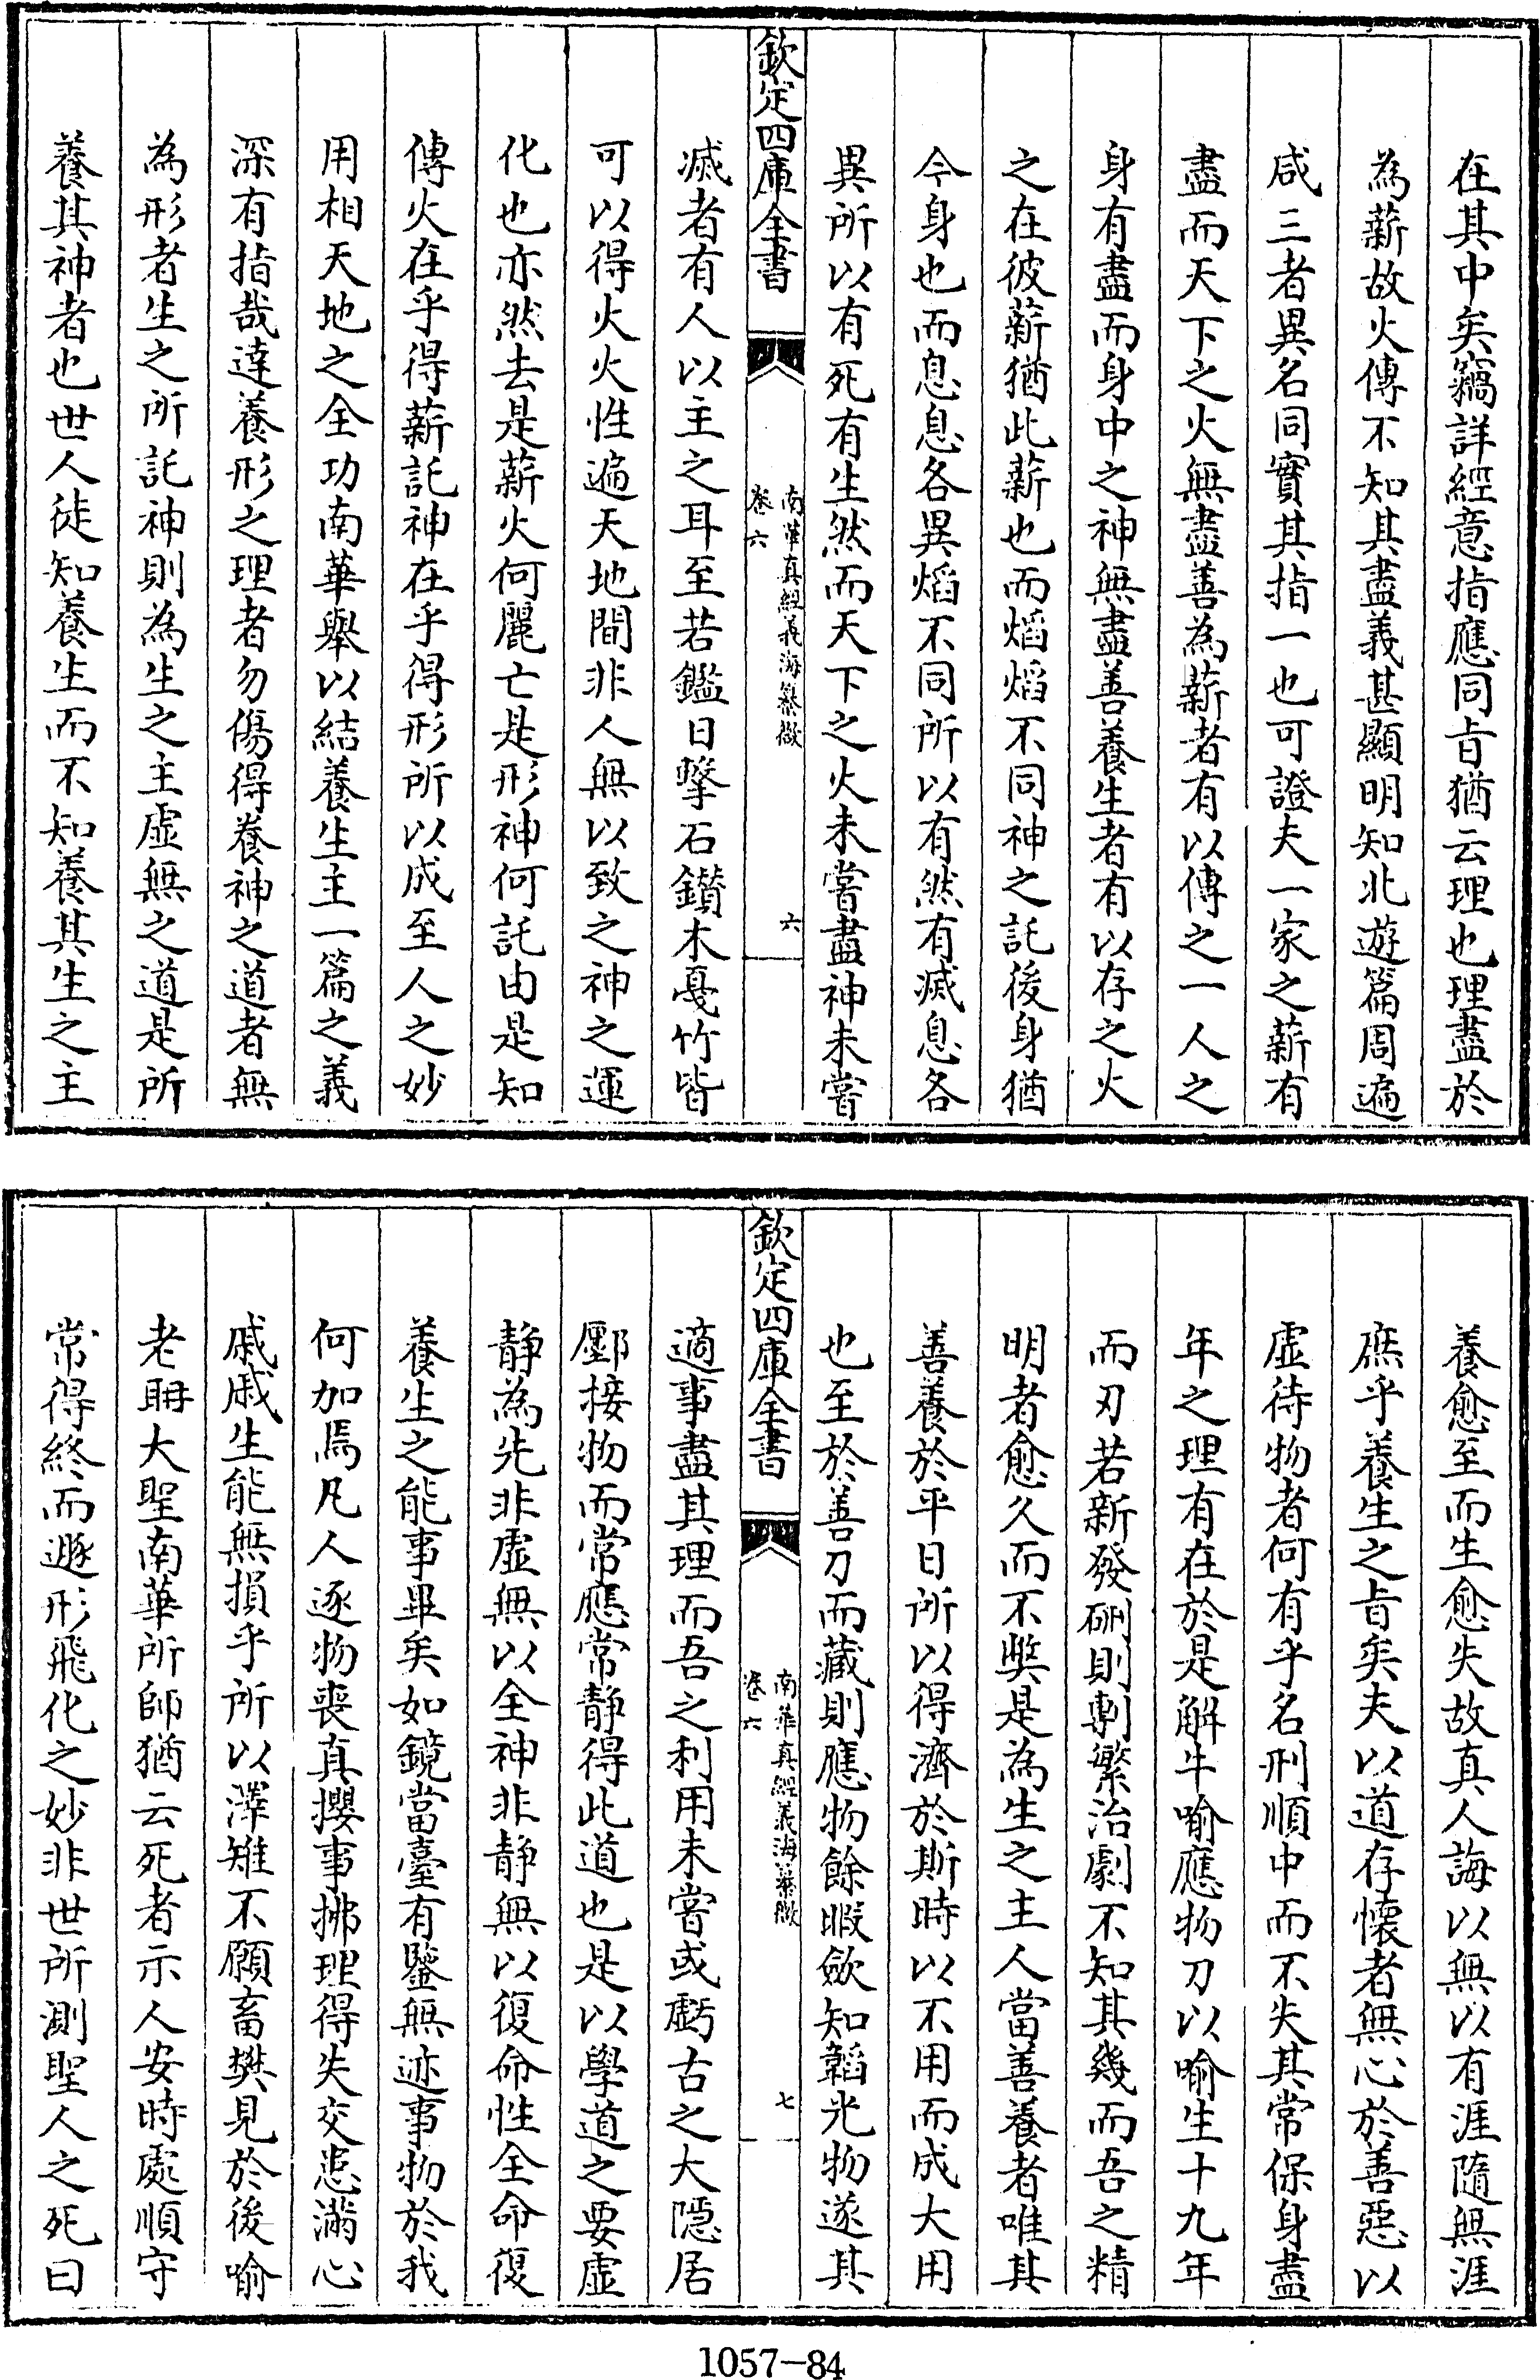 在其中矣竊詳經意指應同旨猶云理也理盡於
為薪故火傳不知其盡義甚顯明知北遊篇周遍
咸三者異名同實其指一也可證夫一家之薪有
盡而天下之火無盡善為薪者有以傳之一人之
身有盡而身中之神無盡善養生者有以存之火
之在彼薪猶此薪也而熖熖不同神之託後身猶
今身也而息息各異熖不同所以有然有滅息各
異所以有死有生然而天下之火未嘗盡神未嘗
欽定四庫全書
南華真經義海纂微
卷六
六
滅者有人以主之耳至若鑑日擊石鑚木戞竹皆
可以得火火性遍天地間非人無以致之神之運
化也亦然去是薪火何麗亡是形神何託由是知
傳火在乎得薪託神在乎得形所以成至人之妙
用相天地之全功南華舉以結養生主一篇之義
深有指哉達養形之理者勿傷得養神之道者無
為形者生之所託神則為生之主虛無之道是所
養其神者也世人徒知養生而不知養其生之主
養愈至而生愈失故真人誨以無以有涯隨無涯
庶乎養生之旨矣夫以道存懷者無心於善惡以
虛待物者何有乎名刑順中而不失其常保身盡
年之理有在於是解牛喻應物刀以喻生十九年
而刃若新發硎則剸繁治劇不知其幾而吾之精
明者愈久而不獘是為生之主人當善養者唯其
善養於平日所以得濟於斯時以不用而成大用
也至於善刀而藏則應物餘暇歛知韜光物遂其
欽定四庫全書
南華真經義海纂微
卷六
七
適事盡其理而吾之利用未嘗或虧古之大隱居
鄽接物而常應常靜得此道也是以學道之要虛
靜為先非虛無以全神非靜無以復命性全命復
養生之能事畢矣如鏡當臺有鑒無迹事物於我
何加焉凡人逐物喪真攖事拂理得失交患滿心
戚戚生能無損乎所以澤雉不願畜樊見於後喻
老聃大聖南華所師猶云死者示人安時處順守
常得終而遯形飛化之妙非世所測聖人之死曰
1057-84